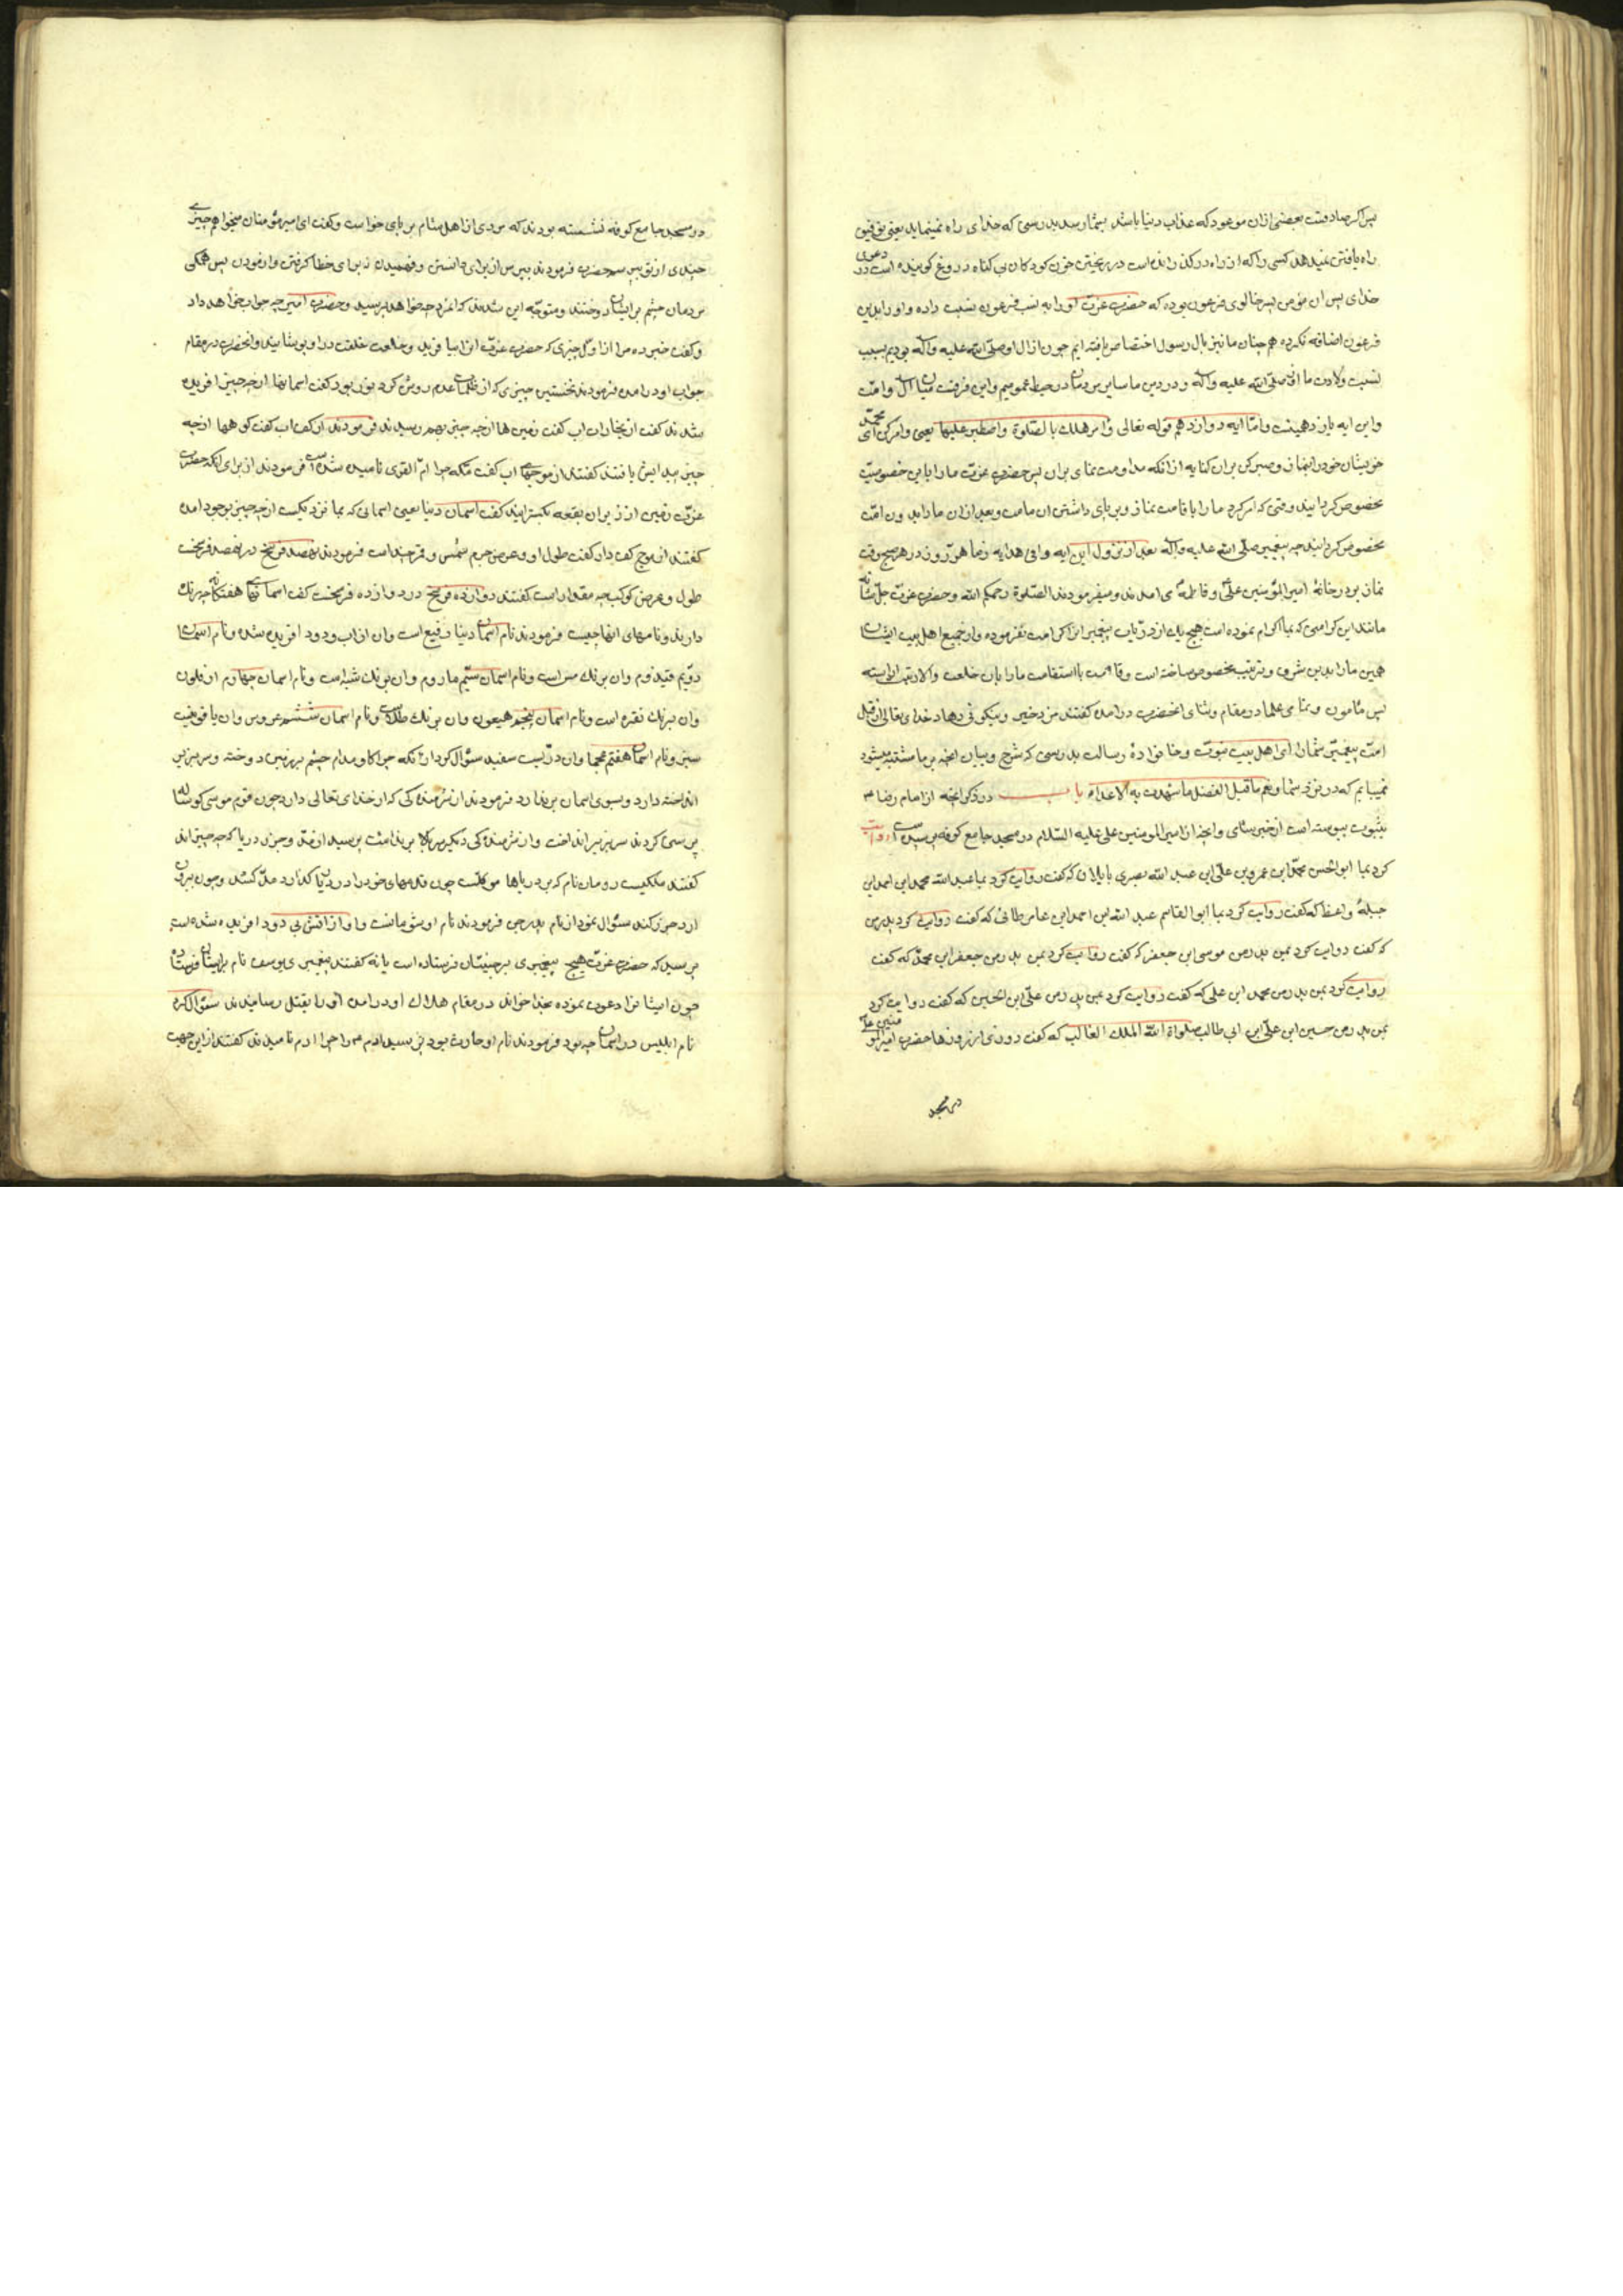 پس اگر صادقست بعضی ازان موعود که عذاب دنیا باشد بشما رسد بدرستی که خدای راه نمینماید یعنی توفیق
راه یافتن نمیدهد کسی را که از راه در گذرانده است در ریختن خون کودکان بی گناه دروغ گوینده است در دعوی
خدای پس ان مؤمن پسر خالوی فرعون بوده که حضرت عزت او را به نسب فرعون نسبت داده و او را بدین
فرعون اضافه نکرده هم چنان ما نیز بال رسول اختصاص یافته ایم چون از ال او صلّی الله علیه وآله بودیم بسبب
نسبت ولادت ما از صلّی الله علیه وآله و در دین ما سایر مردمان در حیطه عمومیم و این فرقست میان ال و امّت
و این ایه یازدهینست و امّا ایه دوازدهم قوله تعالی وأمر اهلک بالصّلوة واصطبر علیها یعنی و امر کن ای محمّد
خویشان خود را بنماز و صبر کن بران کنایه از انکه مداومت نمای بران پس حضرت عزت ما را باین خصوصیت
مخصوص گردانید وقتی که امر کرد ما را باقامت نماز و برپای داشتن ان با امت و بعد ازان ما را بدون امّت
مخصوص گردانید چه پیغمبر صلّی الله علیه وآله بعد از نزول این ایه هر روز در هر پنج وقت
نماز بدر خانهٔ امیرالمؤمنین علی و فاطمه می امدند و میفرمودند الصّلوة رحمکم الله و حضرت عزت جلّ شانه
مانند این کرامتی که بما اکرام نموده است هیچ یک از ذریات پیغمبران را کرامت نفرموده و از جمیع اهل بیت ایشان
همین ما را بدین شرف و ترتیب مخصوص ساخته است و قامت با استقامت ما را بان خلعت والا رتبت اراسته
پس مأمون و تمامی علما در مقام و ثنای انحضرت درامده گفتند مزد خیر و نیکوئی دهاد خدای تعالی از قبل
امّت پیغمبر شما را ای اهل بیت نبوّت و خانوادهٔ رسالت بدرستی که شرح و بیان انچه بر ما مشتبه میشود
نمییابیم که در نزد شما و نعم ما قیل الفضل ما شهدت به الاعداء باب در ذکر انچه از امام رضا ع
بثبوت پیوسته است از خبر شامی و انچه از امیرالمومنین علی علیه السّلام در مسجد جامع کوفه پرسیده است روایت
کرد بما ابوالحسن محمّد ابن عمرو بن علی ابن عبد الله بصری که گفت روایت کرد بما عبد الله محمد ابن احمد ابن
جبلهٔ واعظ که گفت روایت کرد بما ابوالقاسم عبد الله ابن احمد ابن عامر طائی که گفت روایت کرد پدر من
که گفت روایت کرد بمن پدر من موسی ابن جعفر که گفت روایت کرد بمن پدر من جعفر ابن محمد که گفت
روایت کرد بمن پدر من محمد ابن علی که گفت روایت کرد بمن پدر من علی ابن الحسین که گفت روایت کرد
بمن پدر من حسین ابن علی ابن ابی طالب صلواة الله الملک الغالب که گفت روزی از روزها حضرت امیرالمؤمنین علی
در مسجد
در مسجد جامع کوفه نشسته بودند که مردی از اهل شام بر پای خواست و گفت ای امیر مؤمنان میخواهم چیزی
چندی از تو پرسم حضرت فرمودند بپرس از برای دانستن و فهمیدن نه برای خطا گرفتن و ازمودن پس همگی
مردمان چشم بر ایشان دوختند و متوجّه این شدند که انمرد چه خواهد پرسید و حضرت امیر چه جواب خواهد داد
و گفت خبر ده مرا از اوّل چیزی که حضرت عزت انرا بیافرید و خلعت خلقت در او پوشانید و انحضرت در مقام
جواب او درامده فرمودند نخستین چیزی که از ظلمات عدم روشن کرد نور بود گفت اسمانها از چه چیز افریده
شدند گفت از بخاران اب گفت زمین ها از چه چیز بهم رسیدند فرمودند از کف اب گفت کوهها از چه
چیز پیدایش یافتند گفتند از موجهای اب گفت مکه چرا امّ القری نامیده شده است فرمودند از برای انکه حضرت
عزت زمین را از زیر ان بقعه بگسترانید گفت اسمان دنیا یعنی اسمانی که بما نزدیکست از چه چیز بوجود امده
گفتند از موج کف دار گفت طول او و عرض جرم شمس و قمر چند است فرمودند نهصد فرسخ در نهصد فرسخست
طول و عرض کوکب چه مقدار است گفتند دوازده فرسخ در دوازده فرسخست گفت اسمانهای هفتگانه چه رنگ
دارند و نامهای انها چیست فرمودند نام اسمان دنیا رفیع است و ان از اب و دود افریده شده و نام اسمان
دویم قیدوم و ان برنگ مس است و نام اسمان سیّم ماروم و ان برنگ شبه است و نام اسمان چهارم ارفلون
و ان برنگ نقره است و نام اسمان پنجم هیعون و ان برنگ طلاست و نام اسمان ششم عروس و ان یاقوتیست
سبز و نام اسمان هفتم عجما و ان درّیست سفید سئوال کرد از انکه چرا گاو مدام چشم بر زمین دوخته و سر بزیر
انداخته دارد و بسوی اسمان بر ندارد فرمودند از شرمندگی که از خدای تعالی دارد چون قوم موسی گوساله
پرستی کردند سر بزیر انداخت و از شرمندگی دیگر سر بالا بر نداشت پرسید از مدّ و جزر دریا که چه چیزاند
گفتند ملکیست رومان نام که بر دریاها موکلست چون قدمهای خود را در دریا گذارد مدّ کشد و چون بیرون
ارد جزر کند سئوال نمود از نام پدر جن فرمودند نام او شومانست و او از اتش بی دود افریده شده است
پرسید که حضرت عزت هیچ پیغمبری بر جنیّان فرستاده است یا نه گفتند پیغمبری یوسف نام بر ایشان فرستاده
چون ایشانرا دعوت نموده بخدا خواند در مقام هلاک او درامده او را بقتل رسانیدند سئوال کرد
نام ابلیس در اسمان چه بود فرمودند نام او حارث بود پرسید ادم را چرا ادم نامیدند گفتند از این جهت